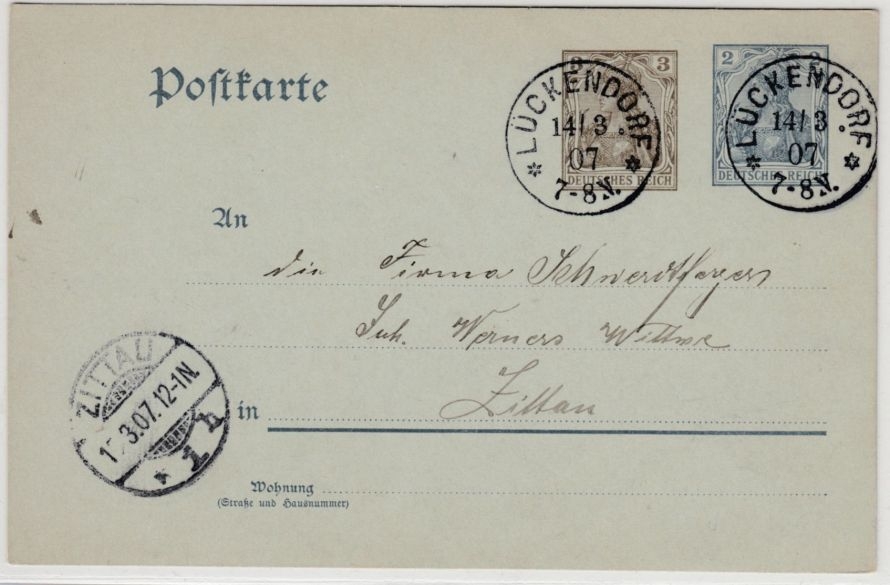 Postkarte
3
DEUTSCHES REICH
2
DEUTSCHES REICH
LÜCKENDORF
14/3
07
7-8V.
LÜCKENDORF
14/3
07
7-8V.
An
die Firma Schwerdtfeger
Inh. Werners Wittwe
in Zittau
ZITTAU
3.07.12-1N.
* 1 b
Wohnung
(Straße und Hausnummer)